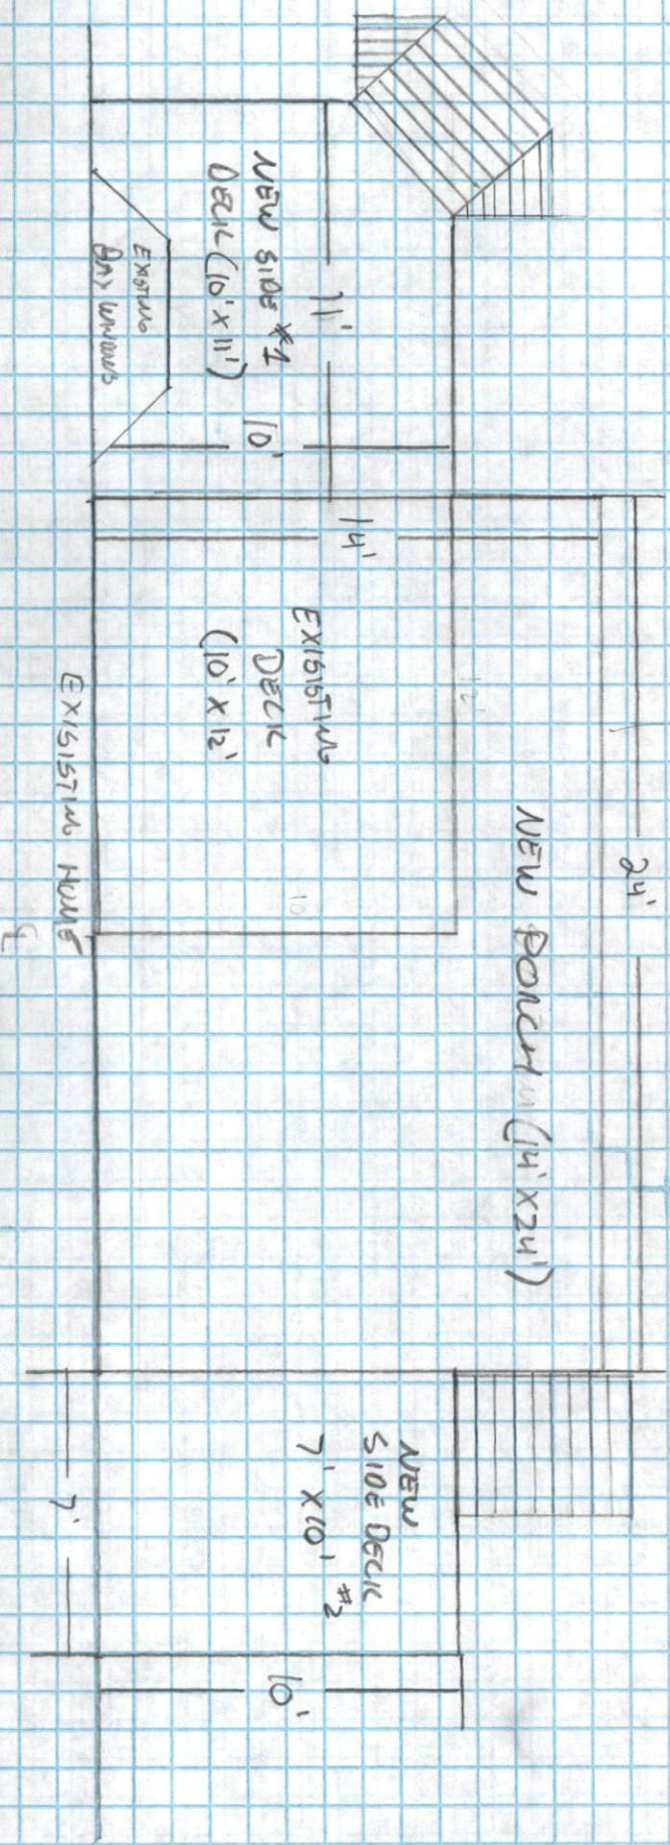 NEW SIDE #1
DECK (10' X 11')
11'
10'
EXISTING
BAY WINDOWS
14'
EXISISTING
DECK
(10' X 12'
12
10
EXISISTING HOME
24'
NEW PORCH (14' X 24')
NEW
SIDE DECK
7' X 10' #2
7'
10'